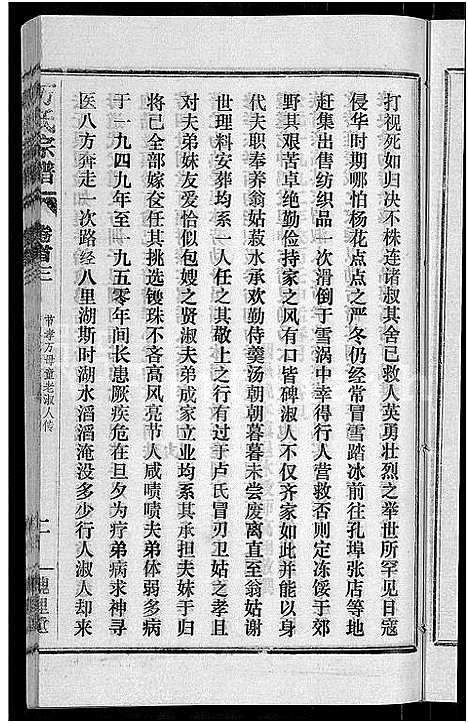 打视死如归决不株连诸淑其舍已救人英勇壮烈之举世所罕见日寇
侵华时期哪怕杨花点点之严冬仍经常冒雪踏冰前往孔埠张店等地
赶集出售纺织品一次滑倒于雪涡中幸得行人营救否则定冻馁于郊
野其艰苦卓绝勤俭持家之风有口皆碑淑人不仅齐家如此并能以身
代夫职奉养翁姑菽水承欢勤侍羹汤朝朝暮暮未尝废离直至翁姑谢
世理料安葬均系一人任之其敬上之行有过于卢氏冒刃卫姑之孝且
对夫弟妹友爱恰似包嫂之贤淑夫弟成家立业均系其承担夫妹于归
将已全部嫁奁任其挑选镘珠不吝高风亮节人咸啧啧夫弟体弱多病
于一九四九年至一九五零年间长患厥疾危在旦夕为疗弟病求神寻
医八方奔走一次路经八里湖斯时湖水滔滔淹没多少行人淑人却来
万氏宗谱
卷首三
节孝万母童老淑人传
二